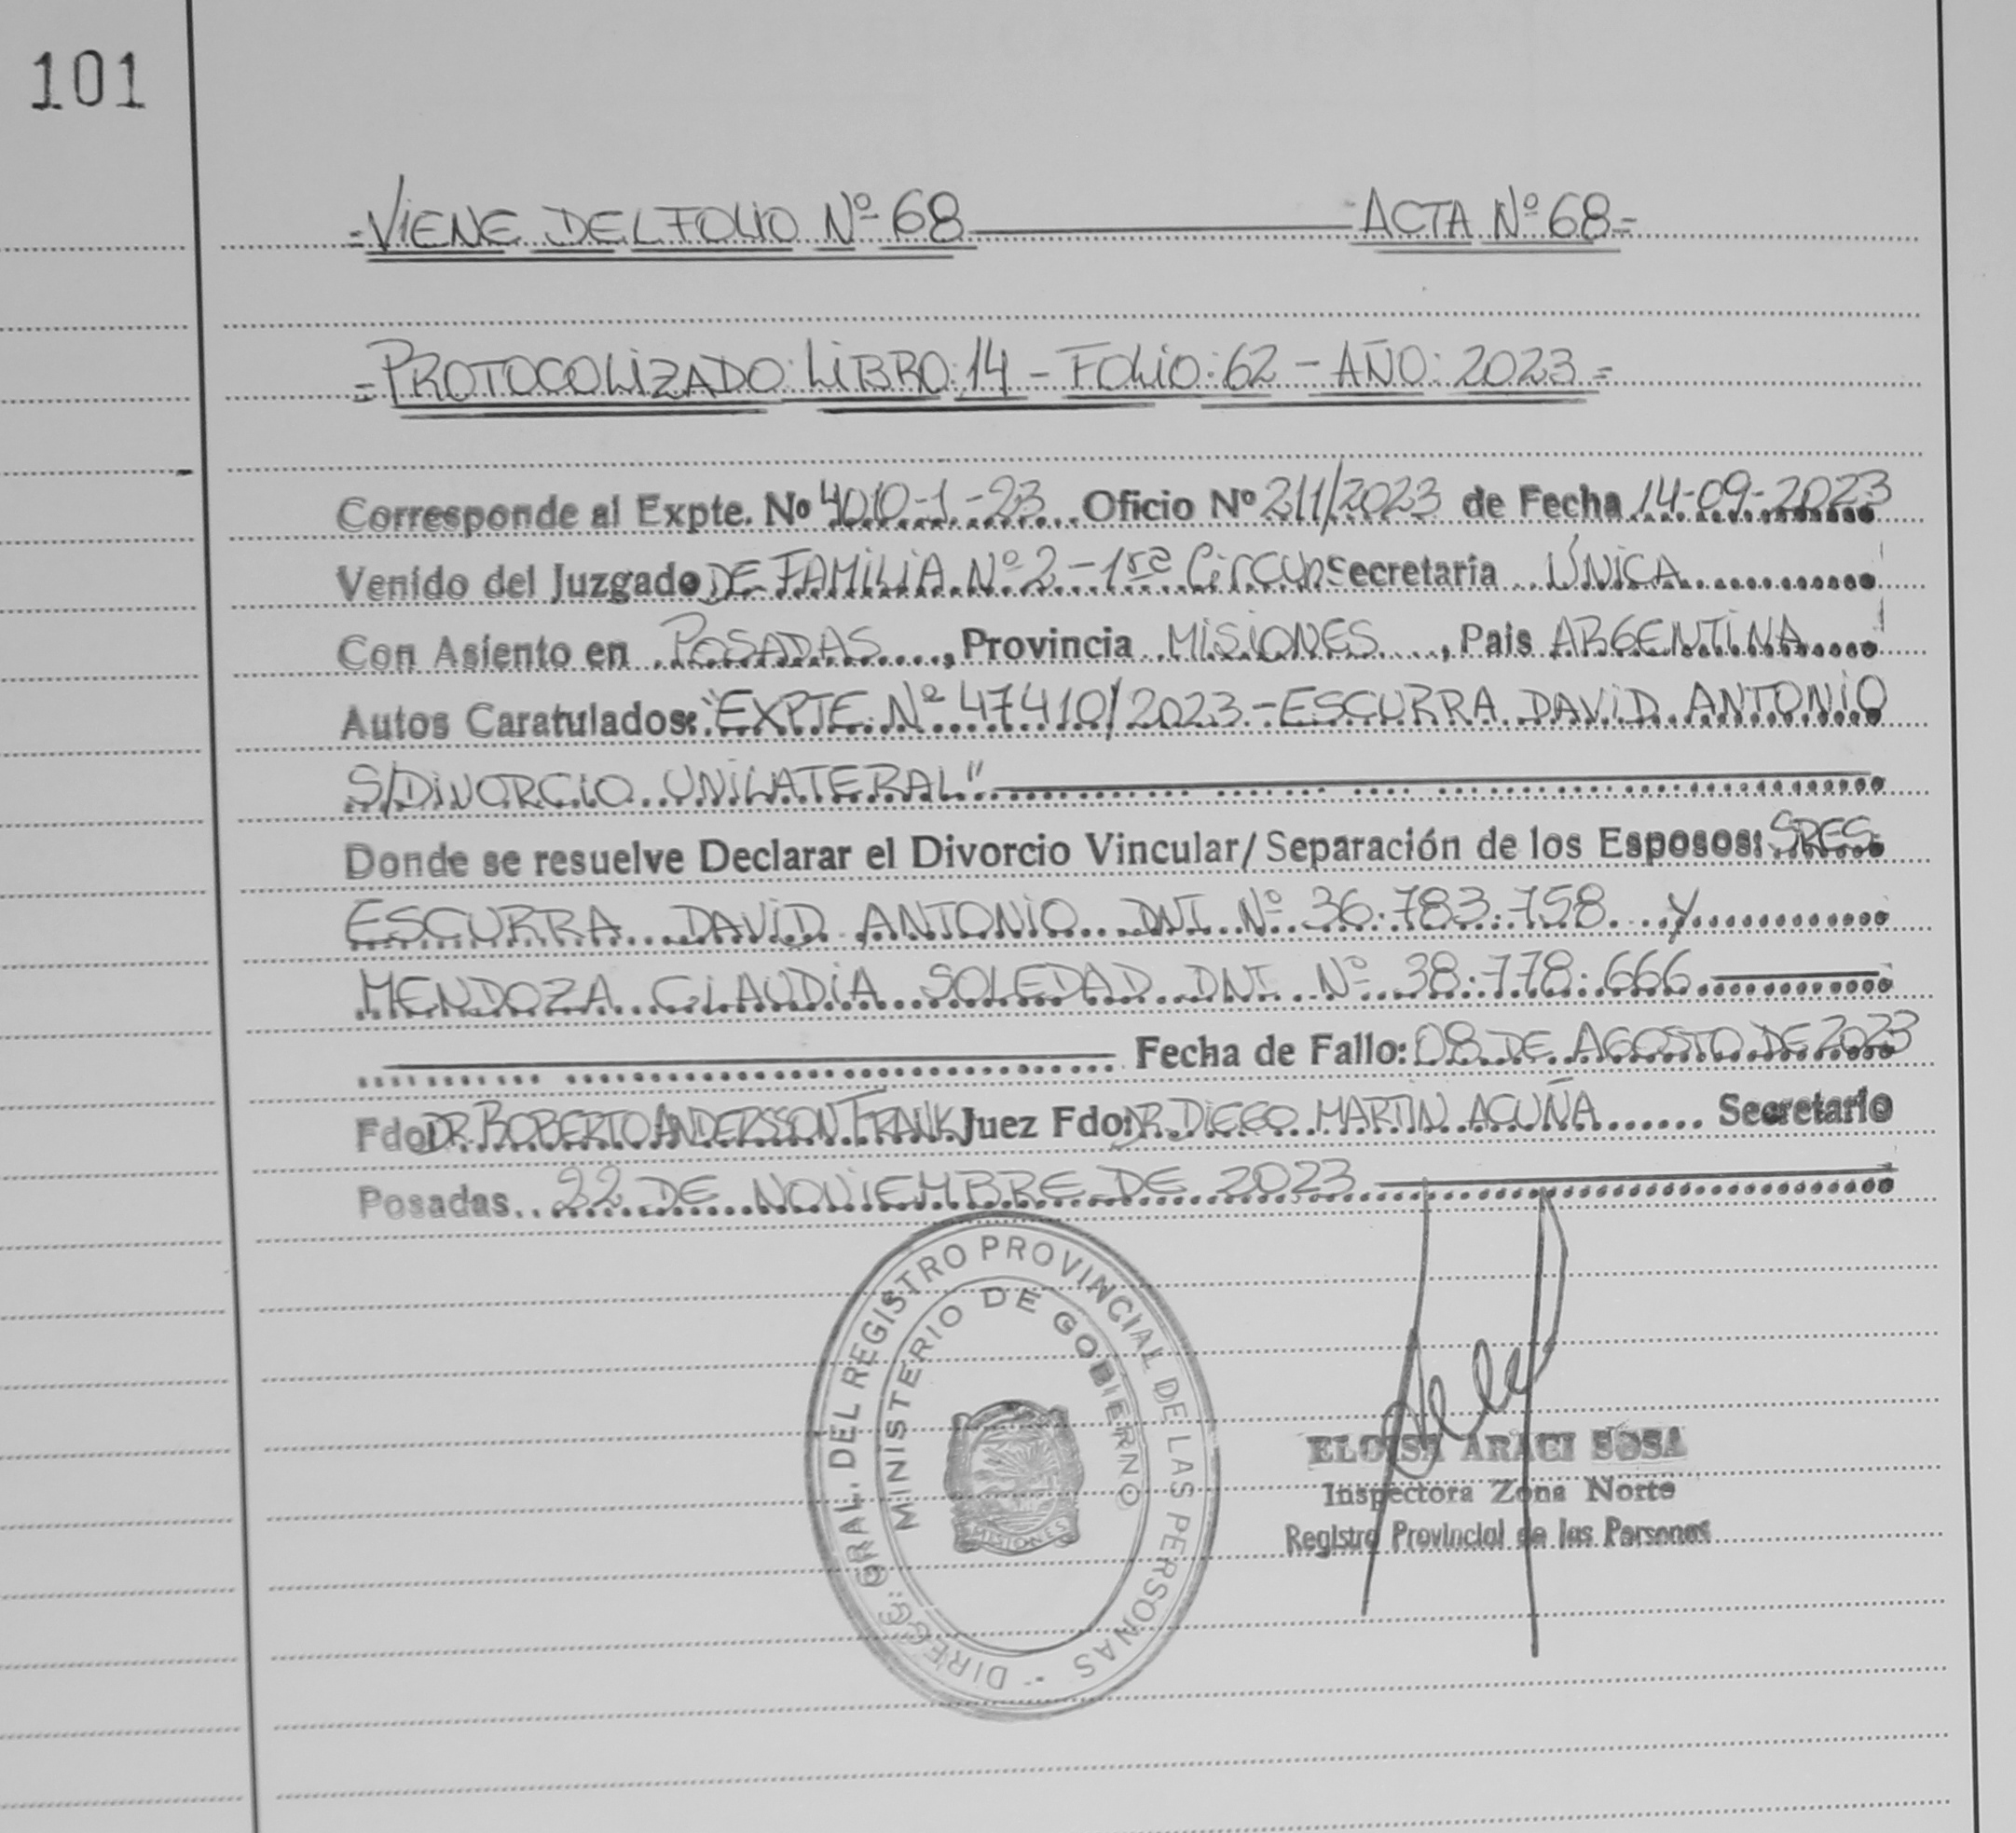 101
=VIENE DEL FOLIO Nº 68 ACTA Nº 68=
=PROTOCOLIZADO: LIBRO: 14 - FOLIO: 62 - AÑO: 2023=
Corresponde al Expte. Nº 4010-1-23 Oficio Nº 211/2023 de Fecha 14-09-2023
Venido del Juzgado DE FAMILIA Nº 2 - 1ra Circun Secretaria ÚNICA
Con Asiento en POSADAS, Provincia MISIONES, Pais ARGENTINA
Autos Caratulados: "EXPTE. Nº 47410/2023 - ESCURRA DAVID ANTONIO
S/DIVORCIO UNILATERAL"
Donde se resuelve Declarar el Divorcio Vincular/ Separación de los Esposos: SRES.
ESCURRA DAVID ANTONIO DNI Nº 36.783.758 y
MENDOZA CLAUDIA SOLEDAD DNI Nº 38.778.666
Fecha de Fallo: 08 DE AGOSTO DE 2023
Fdo DR. ROBERTO ANDERSSON FRANK Juez Fdo: DR. DIEGO MARTIN ACUÑA Secretario
Posadas 22 DE NOVIEMBRE DE 2023
DIRECC. GRAL. DEL REGISTRO PROVINCIAL DE LAS PERSONAS -
MINISTERIO DE GOBIERNO
MISIONES
ELOISA ARACI SOSA
Inspectora Zona Norte
Registro Provincial de las Personas